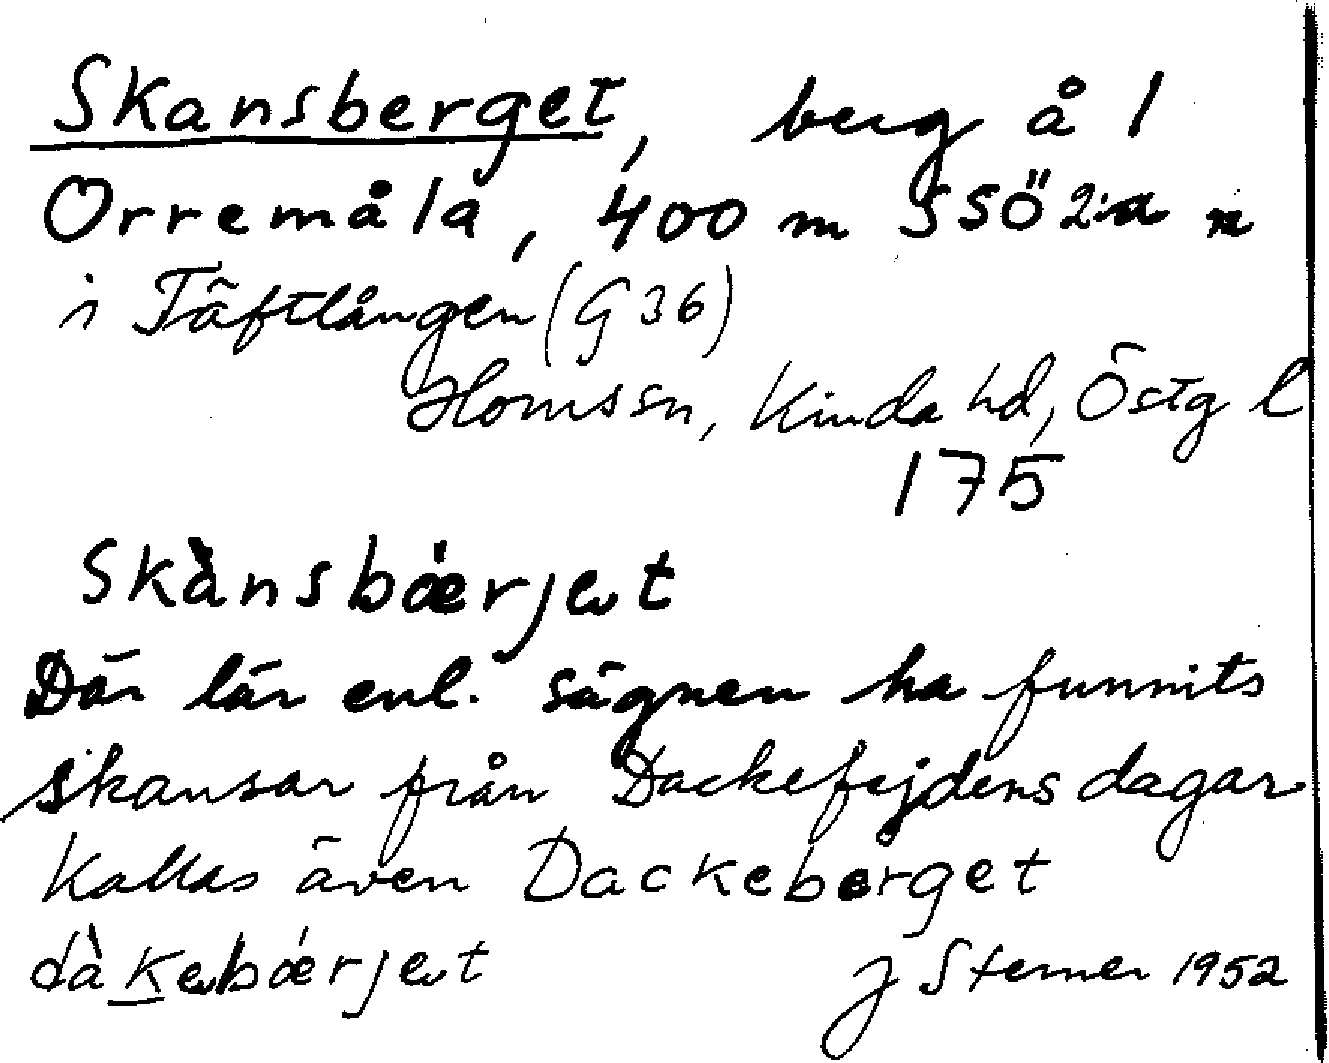 Skansberget, berg å 1
Orremåla, 400 m SSÖ 2:a n
i Täftlången (G 36)
Horns sn, Kinda hd, Östg l
175
Skànsbǽrjet
Där lär enl. sägnen ha funnits
skansar från Dackefejdens dagar
Kallas även Dackeberget
dàkebǽrjet J Sterner 1952